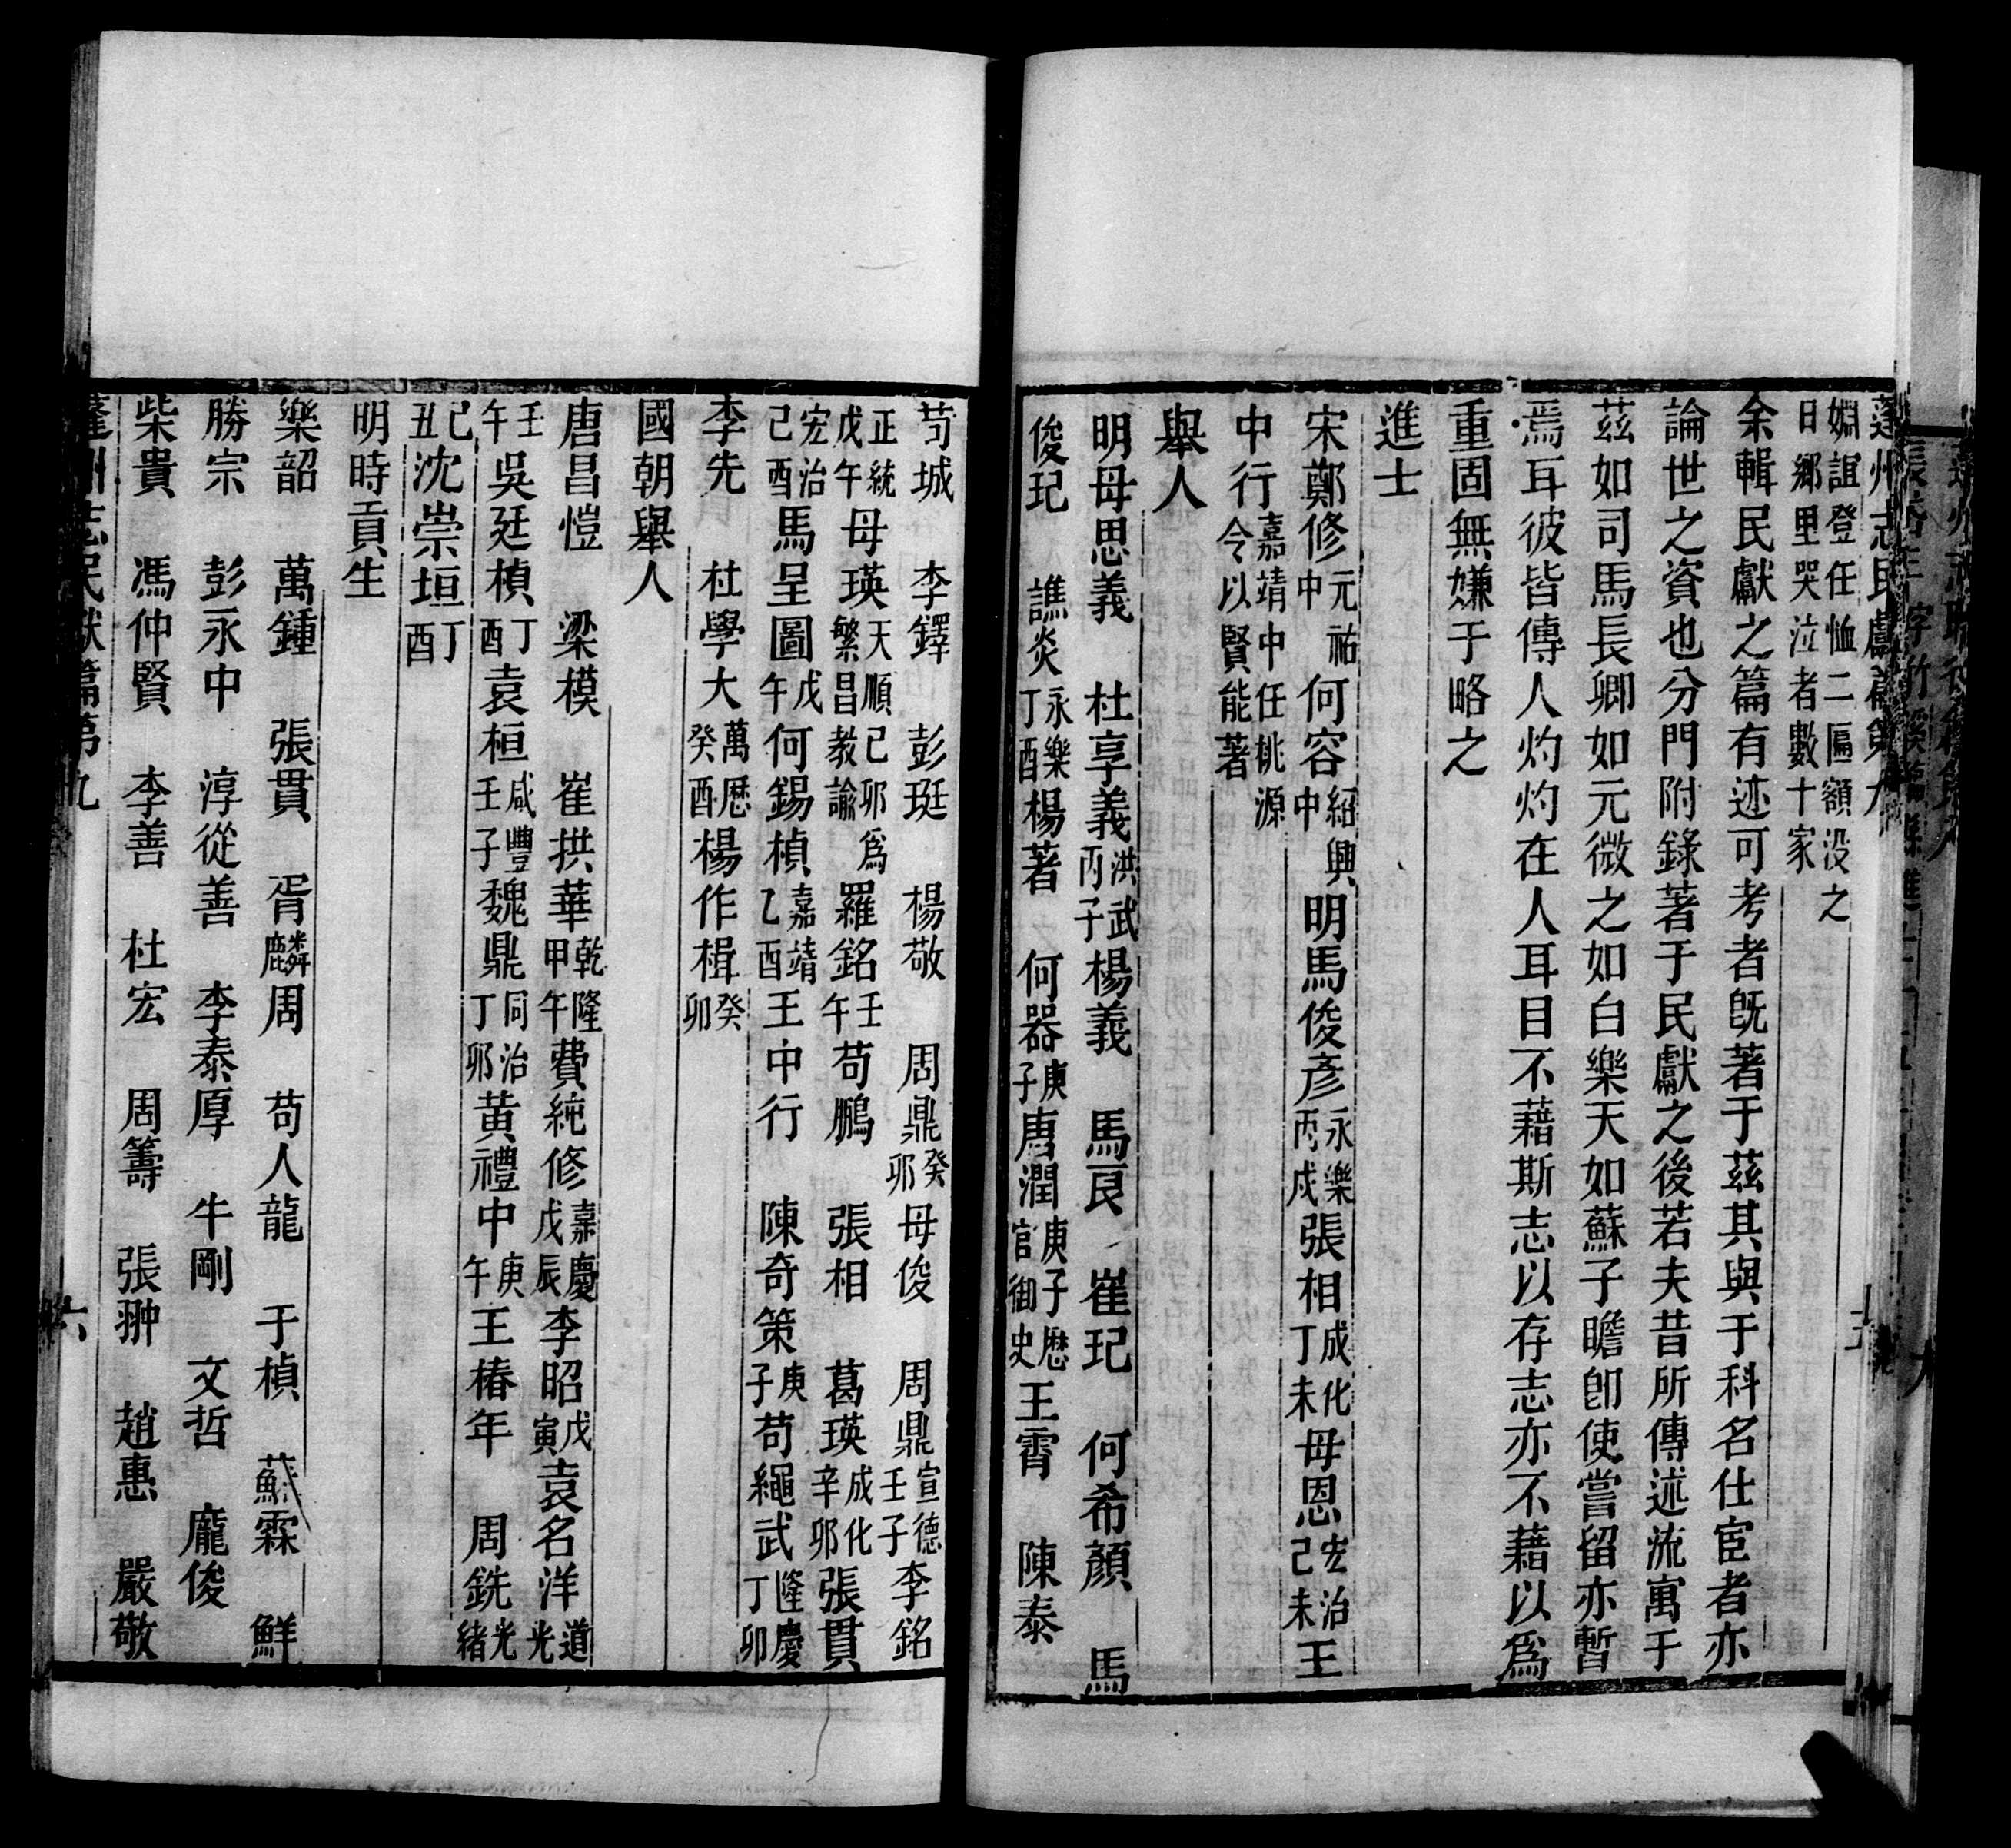 蓬州志民獻篇第九
婣誼登任恤二匾額没之
日鄉里哭泣者數十家
余輯民獻之篇有迹可考者既著于茲其與于科名仕宦者亦
論世之資也分門附錄著于民獻之後若夫昔所傳述流寓于
茲如司馬長卿如元微之如白樂天如蘇子瞻卽使嘗留亦暫
焉耳彼皆傳人灼灼在人耳目不藉斯志以存志亦不藉以爲
重固無嫌于略之
進士
宋鄭修元祐中何容紹興中明馬俊彥永樂丙戌張相成化丁未母恩宏治己未王
中行嘉靖中任桃源令以賢能著
舉人
明母思義 杜享義洪武丙子楊義 馬良 崔玘 何希顏 馬
俊玘 譙炎永樂丁酉楊著 何器庚子唐潤庚子歷官御史王霄 陳泰
苟城 李鐸 彭珽 楊敬 周鼎癸卯母俊 周鼎宣德壬子李銘
正統戊午母瑛天順己卯爲繁昌教諭羅銘壬午苟鵬 張相 葛瑛成化辛卯張貫
宏治己酉馬呈圖戊午何錫楨嘉靖乙酉王中行 陳奇策庚子苟繩武隆慶丁卯
李先 杜學大萬歷癸酉楊作楫癸卯
國朝舉人
唐昌愷 梁模 崔拱華乾隆甲午費純修嘉慶戊辰李昭戊寅袁名洋道光
壬午吳廷楨丁酉袁桓咸豐壬子魏鼎同治丁卯黄禮中庚午王椿年 周銑光緒
己丑沈崇垣丁酉
明時貢生
樂韶 萬鍾 張貫 胥麟周 苟人龍 于楨 蘇霖 鮮
勝宗 彭永中 淳從善 李泰厚 牛剛 文哲 龐俊
柴貴 馮仲賢 李善 杜宏 周籌 張翀 趙惠 嚴敬
蓬州志民獻篇第九 六